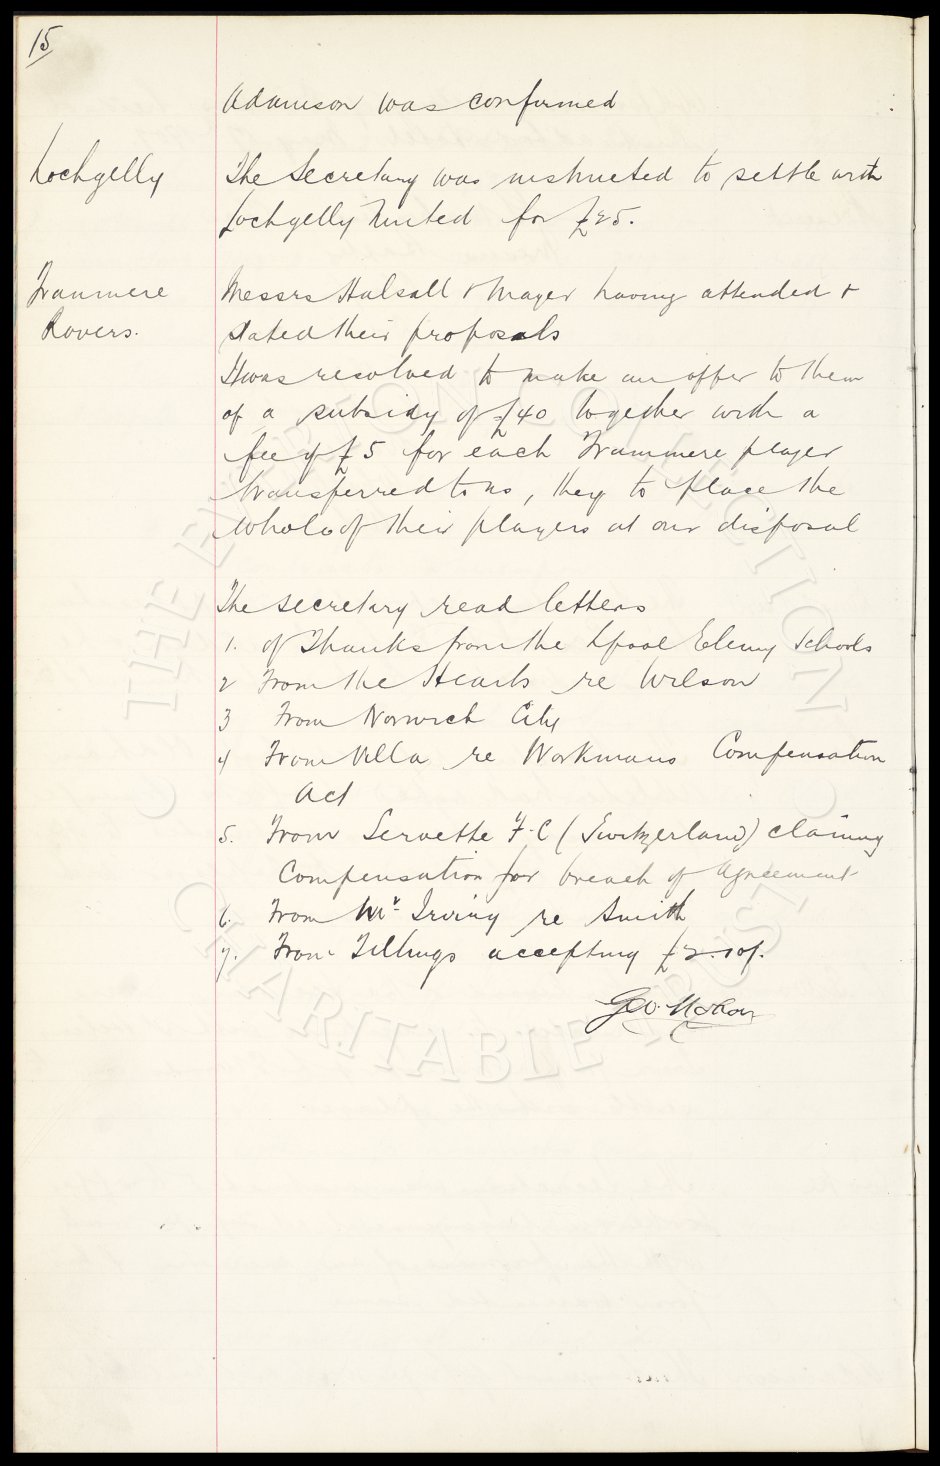 15
Adamson was confirmed
Lochgelly
The Secretary was instructed to settle with
Lochgelly United for £25.
Tranmere
Rovers.
Messrs Halsall & Mayer having attended &
stated their proposals
It was resolved to make an offer to them
of a subsidy of £40 together with a
fee of £5 for each Tranmere player
transferred to us, they to place the
whole of their players at our disposal
The secretary read letters
1. of Thanks from the Lpool Elemy Schools
2 From the Hearts re Wilson
3 From Norwich City
4 From Villa re Workmans Compensation
Act
5. From Servette F.C (Switzerland) claiming
Compensation for breach of Agreement
6. From Mr Irving re Smith
7. From Tillings accepting £2.10/.
© THE EVERTON COLLECTION
CHARITABLE TRUST